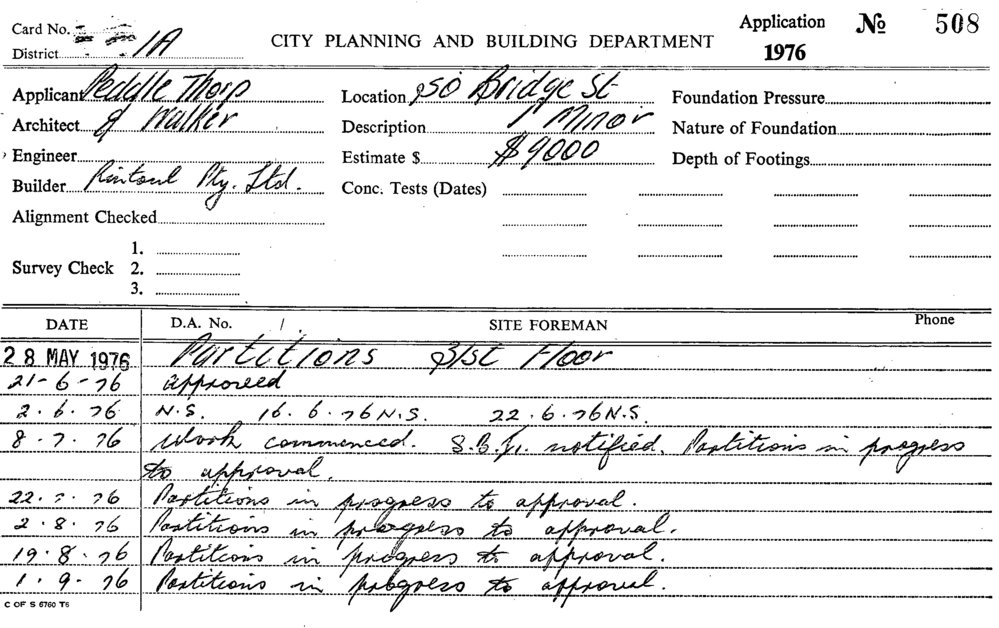 Card No. Application № 508
District 1A CITY PLANNING AND BUILDING DEPARTMENT 1976
Applicant Peddle Thorp Location 50 Bridge St Foundation Pressure
Architect & Walker Description Minor Nature of Foundation
Engineer Estimate $ $9000 Depth of Footings
Builder Rintoul Pty. Ltd. Conc. Tests (Dates)
Alignment Checked
1.
Survey Check 2.
3.
DATE D.A. No. SITE FOREMAN Phone
28 MAY 1976 Partitions 31st Floor
21-6-76 approved
2.6.76 N.S. 16.6.76 N.S. 22.6.76 N.S.
8-7.76 Work commenced. notified. Partitions in progress
to approval.
22.7.76 Partitions in progress to approval.
2.8.76 Partitions in progress to approval.
19.8.76 Partitions in progress to approval.
1.9.76 Partitions in progress to approval.
C OF S 6760 T6